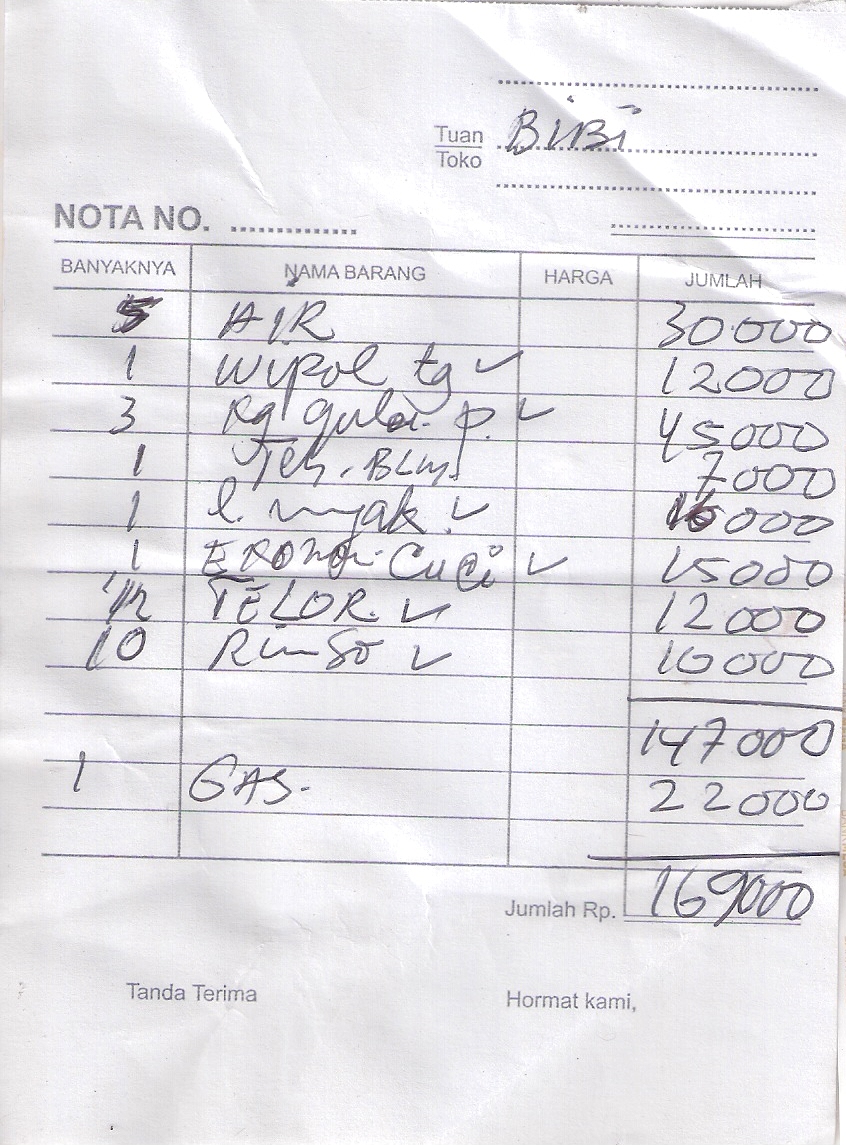 Tuan BiBi
Toko
NOTA NO.
BANYAKNYA NAMA BARANG HARGA JUMLAH
5 AIR 30.000
1 Wipol tg ✓ 12000
3 Kg gula p. ✓ 45000
1 Teh. 7000
1 l. myak ✓ 16000
1 EKONOMI CUCI ✓ 15000
1/2 TELOR. ✓ 12000
10 Rinso ✓ 10000
147000
1 GAS. 22000
Jumlah Rp. 169000
Tanda Terima Hormat kami,